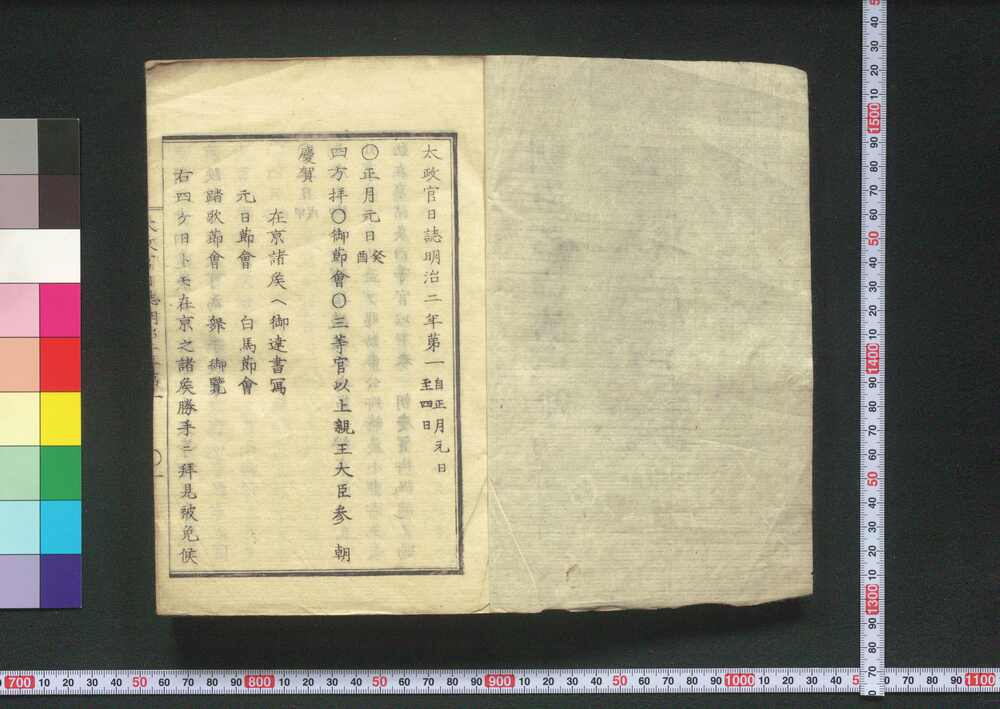 太政官日誌明治二年第一 自正月元日 至四日
〇正月元日 癸酉
四方拝〇御節會〇三等官以上親王大臣参 朝
慶賀
在京諸矦ヘ御達書冩
元日節會 白馬節會
踏歌節會 御覽
右四ケ日トモ在京之諸矦勝手ニ拜見被免候